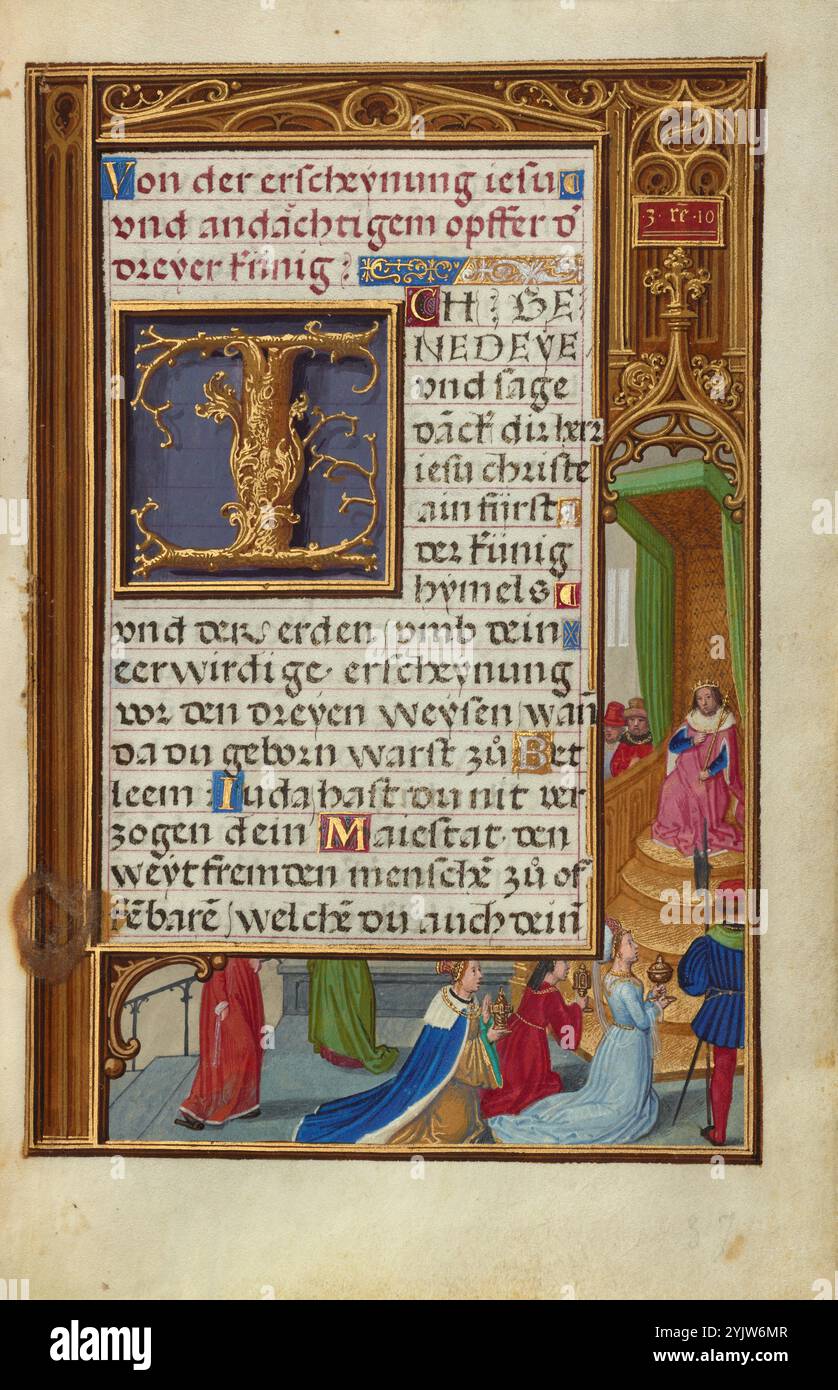 Von der erscheynung iesu
vnd andächtigem opffer d'
dreyer künig :
3 · rē · 10
I
CH : BE
NEDEYE
vnd sage
dāck dir herr
iesu christe
ain fürst
der künig
hymels
vnd der erden / vmb dein
eerwirdige erscheynung
vor den dreyen weysen / wan̄
da du geborn warst zů Bet
leem : Iuda / hast du nit ver
zogen dein Maiestat · den
weyt fremden menschē zů of
fēbarē / welchē du auch dein̄
37
alamy
Image ID: 2YJW6MR
www.alamy.com